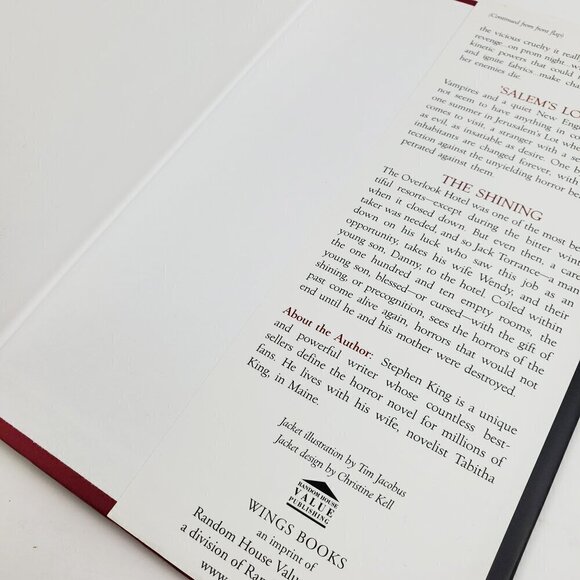 (Continued from front flap)
the vicious cruelty it really
revenge...on prom night...w
kinetic powers that could
and ignite fabrics...make cha
her enemies die.
'SALEM'S LO
Vampires and a quiet New Eng
not seem to have anything in co
one summer in Jerusalem's Lot whe
comes to visit, a stranger with a se
as evil, as insatiable as desire. One b
inhabitants are changed forever, with
tection against the unyielding horror be
petrated against them.
THE SHINING
The Overlook Hotel was one of the most be
tiful resorts—except during the bitter wint
when it closed down. But even then, a care
taker was needed, and so Jack Torrance—a man
down on his luck who saw this job as an
opportunity, takes his wife Wendy, and their
young son, Danny, to the hotel. Coiled within
the one hundred and ten empty rooms, the
young son, blessed—or cursed—with the gift of
shining, or precognition, sees the horrors of the
past come alive again, horrors that would not
end until he and his mother were destroyed.
About the Author: Stephen King is a unique
and powerful writer whose countless best-
sellers define the horror novel for millions of
fans. He lives with his wife, novelist Tabitha
King, in Maine.
Jacket illustration by Tim Jacobus
Jacket design by Christine Kell
RANDOM HOUSE
VALUE
PUBLISHING
WINGS BOOKS
an imprint of
Random House Value
a division of Ran
www.